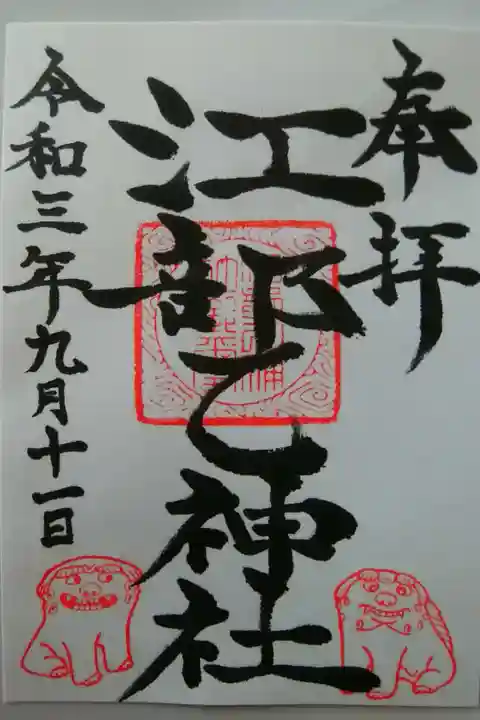 奉拝
江部乙神社
令和三年九月十一日